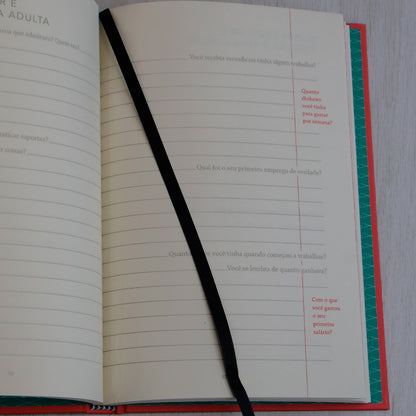 R E
A ADULTA
ma que admirava? Quem
raticar esportes?
er coisas?
Você recebia mesada ou tinha algum trabalho?
Quanto
dinheiro
você tinha
para gastar
por semana?
Qual foi o seu primeiro emprego de verdade?
Quantos você tinha quando começou a trabalhar?
Você se lembra de quanto ganhava?
Com o que
você gastou
o seu
primeiro
salário?